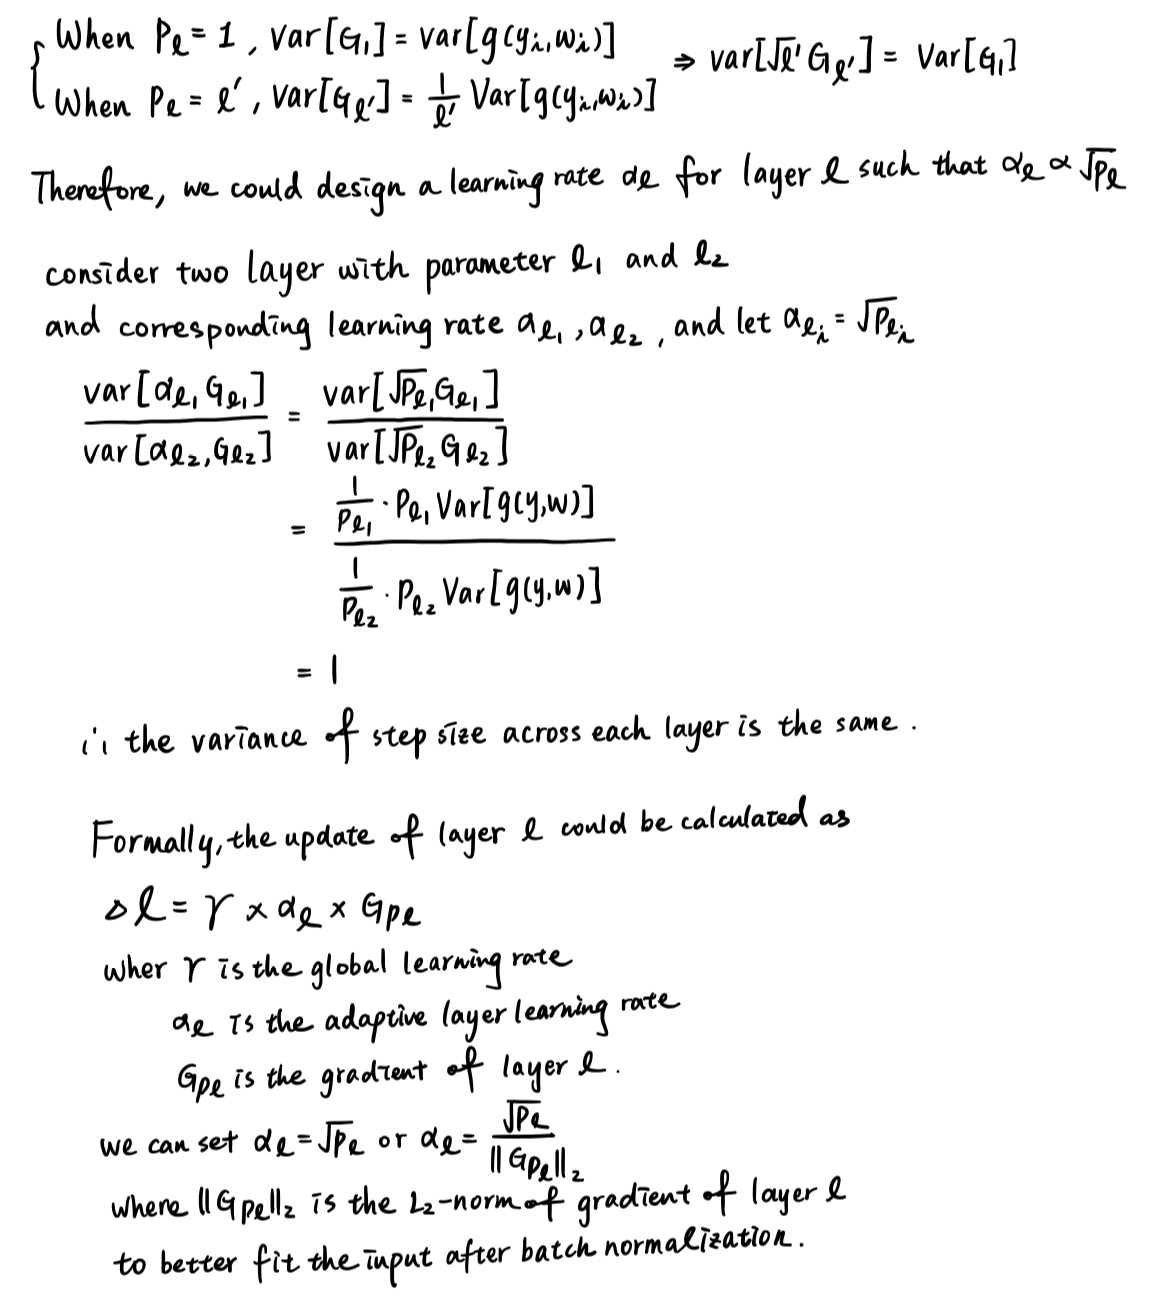 When P_ℓ = 1, var[G_1] = var[g(y_i, w_i)]
⇒ var[√ℓ' G_ℓ'] = Var[G_1]
When P_ℓ = ℓ', var[G_ℓ'] = 1/ℓ' Var[g(y_i, w_i)]
Therefore, we could design a learning rate α_ℓ for layer ℓ such that α_ℓ ∝ √P_ℓ
consider two layer with parameter ℓ_1 and ℓ_2
and corresponding learning rate α_ℓ_1, α_ℓ_2, and let α_ℓ_i = √P_ℓ_i
var[α_ℓ_1, G_ℓ_1] / var[α_ℓ_2, G_ℓ_2] = var[√P_ℓ_1 G_ℓ_1] / var[√P_ℓ_2 G_ℓ_2]
= (1/P_ℓ_1 · P_ℓ_1 Var[g(y,w)]) / (1/P_ℓ_2 · P_ℓ_2 Var[g(y,w)])
= 1
∴ the variance of step size across each layer is the same.
Formally, the update of layer ℓ could be calculated as
△ℓ = γ × α_ℓ × G_Pℓ
wher γ is the global learning rate
α_ℓ is the adaptive layer learning rate
G_Pℓ is the gradient of layer ℓ.
we can set α_ℓ = √P_ℓ or α_ℓ = √P_ℓ / ||G_Pℓ||_2
where ||G_Pℓ||_2 is the L_2-norm of gradient of layer ℓ
to better fit the input after batch normalization.